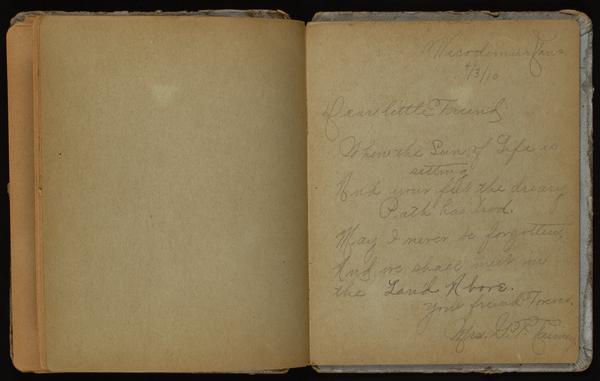 Nicodemus Kans
4/3/10
Dear little Friend,
When the Sun of Life is
setting
And your feet the dreary
Path has trod.
May I never be forgotten,
And we shall meet in
the Land Above.
Your friend
Mrs.